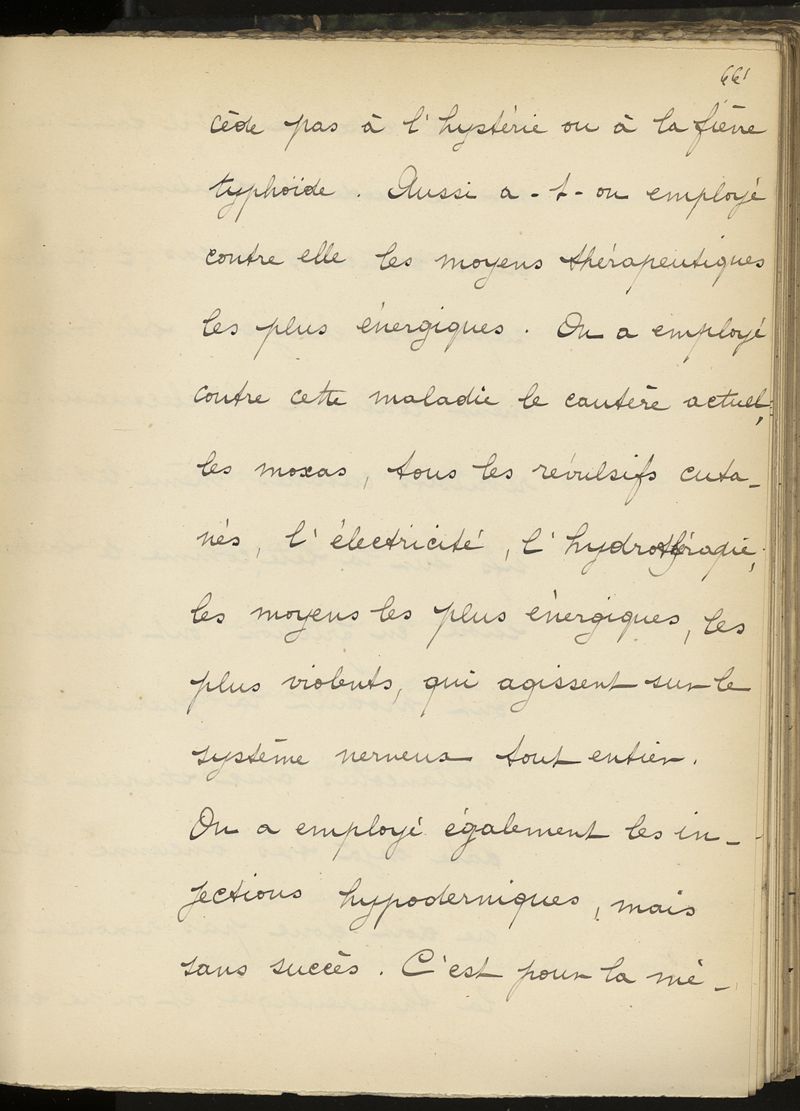 661
cède pas à l'hystérie ou à la fièvre
typhoïde. Aussi a-t-on employé
contre elle les moyens thérapeutiques
les plus énergiques. On a employé
contre cette maladie le cautère actuel,
les moxas, tous les révulsifs cuta-
nés, l'électricité, l'hydrothérapie,
les moyens les plus énergiques, les
plus violents, qui agissent sur le
système nerveux tout entier.
On a employé également les in-
jections hypodermiques, mais
sans succès. C'est pour la mé-